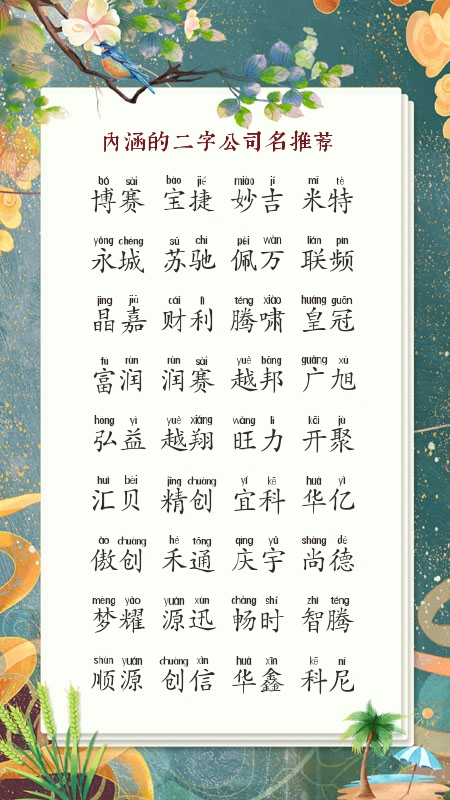 内涵的二字公司名推荐
bó sài bǎo jié miào jí mǐ tè
博赛 宝捷 妙吉 米特
yǒng chéng sū chí pèi wàn lián pín
永城 苏驰 佩万 联频
jīng jiā cái lì téng xiào huáng guān
晶嘉 财利 腾啸 皇冠
fù rùn rùn sài yuè bāng guǎng xù
富润 润赛 越邦 广旭
hóng yì yuè xiáng wàng lì kāi jù
弘益 越翔 旺力 开聚
huì bèi jīng chuàng yí kē huá yì
汇贝 精创 宜科 华亿
ào chuàng hé tōng qìng yǔ shàng dé
傲创 禾通 庆宇 尚德
mèng yào yuán xùn chàng shí zhì téng
梦耀 源迅 畅时 智腾
shùn yuán chuàng xìn huá xīn kē ní
顺源 创信 华鑫 科尼